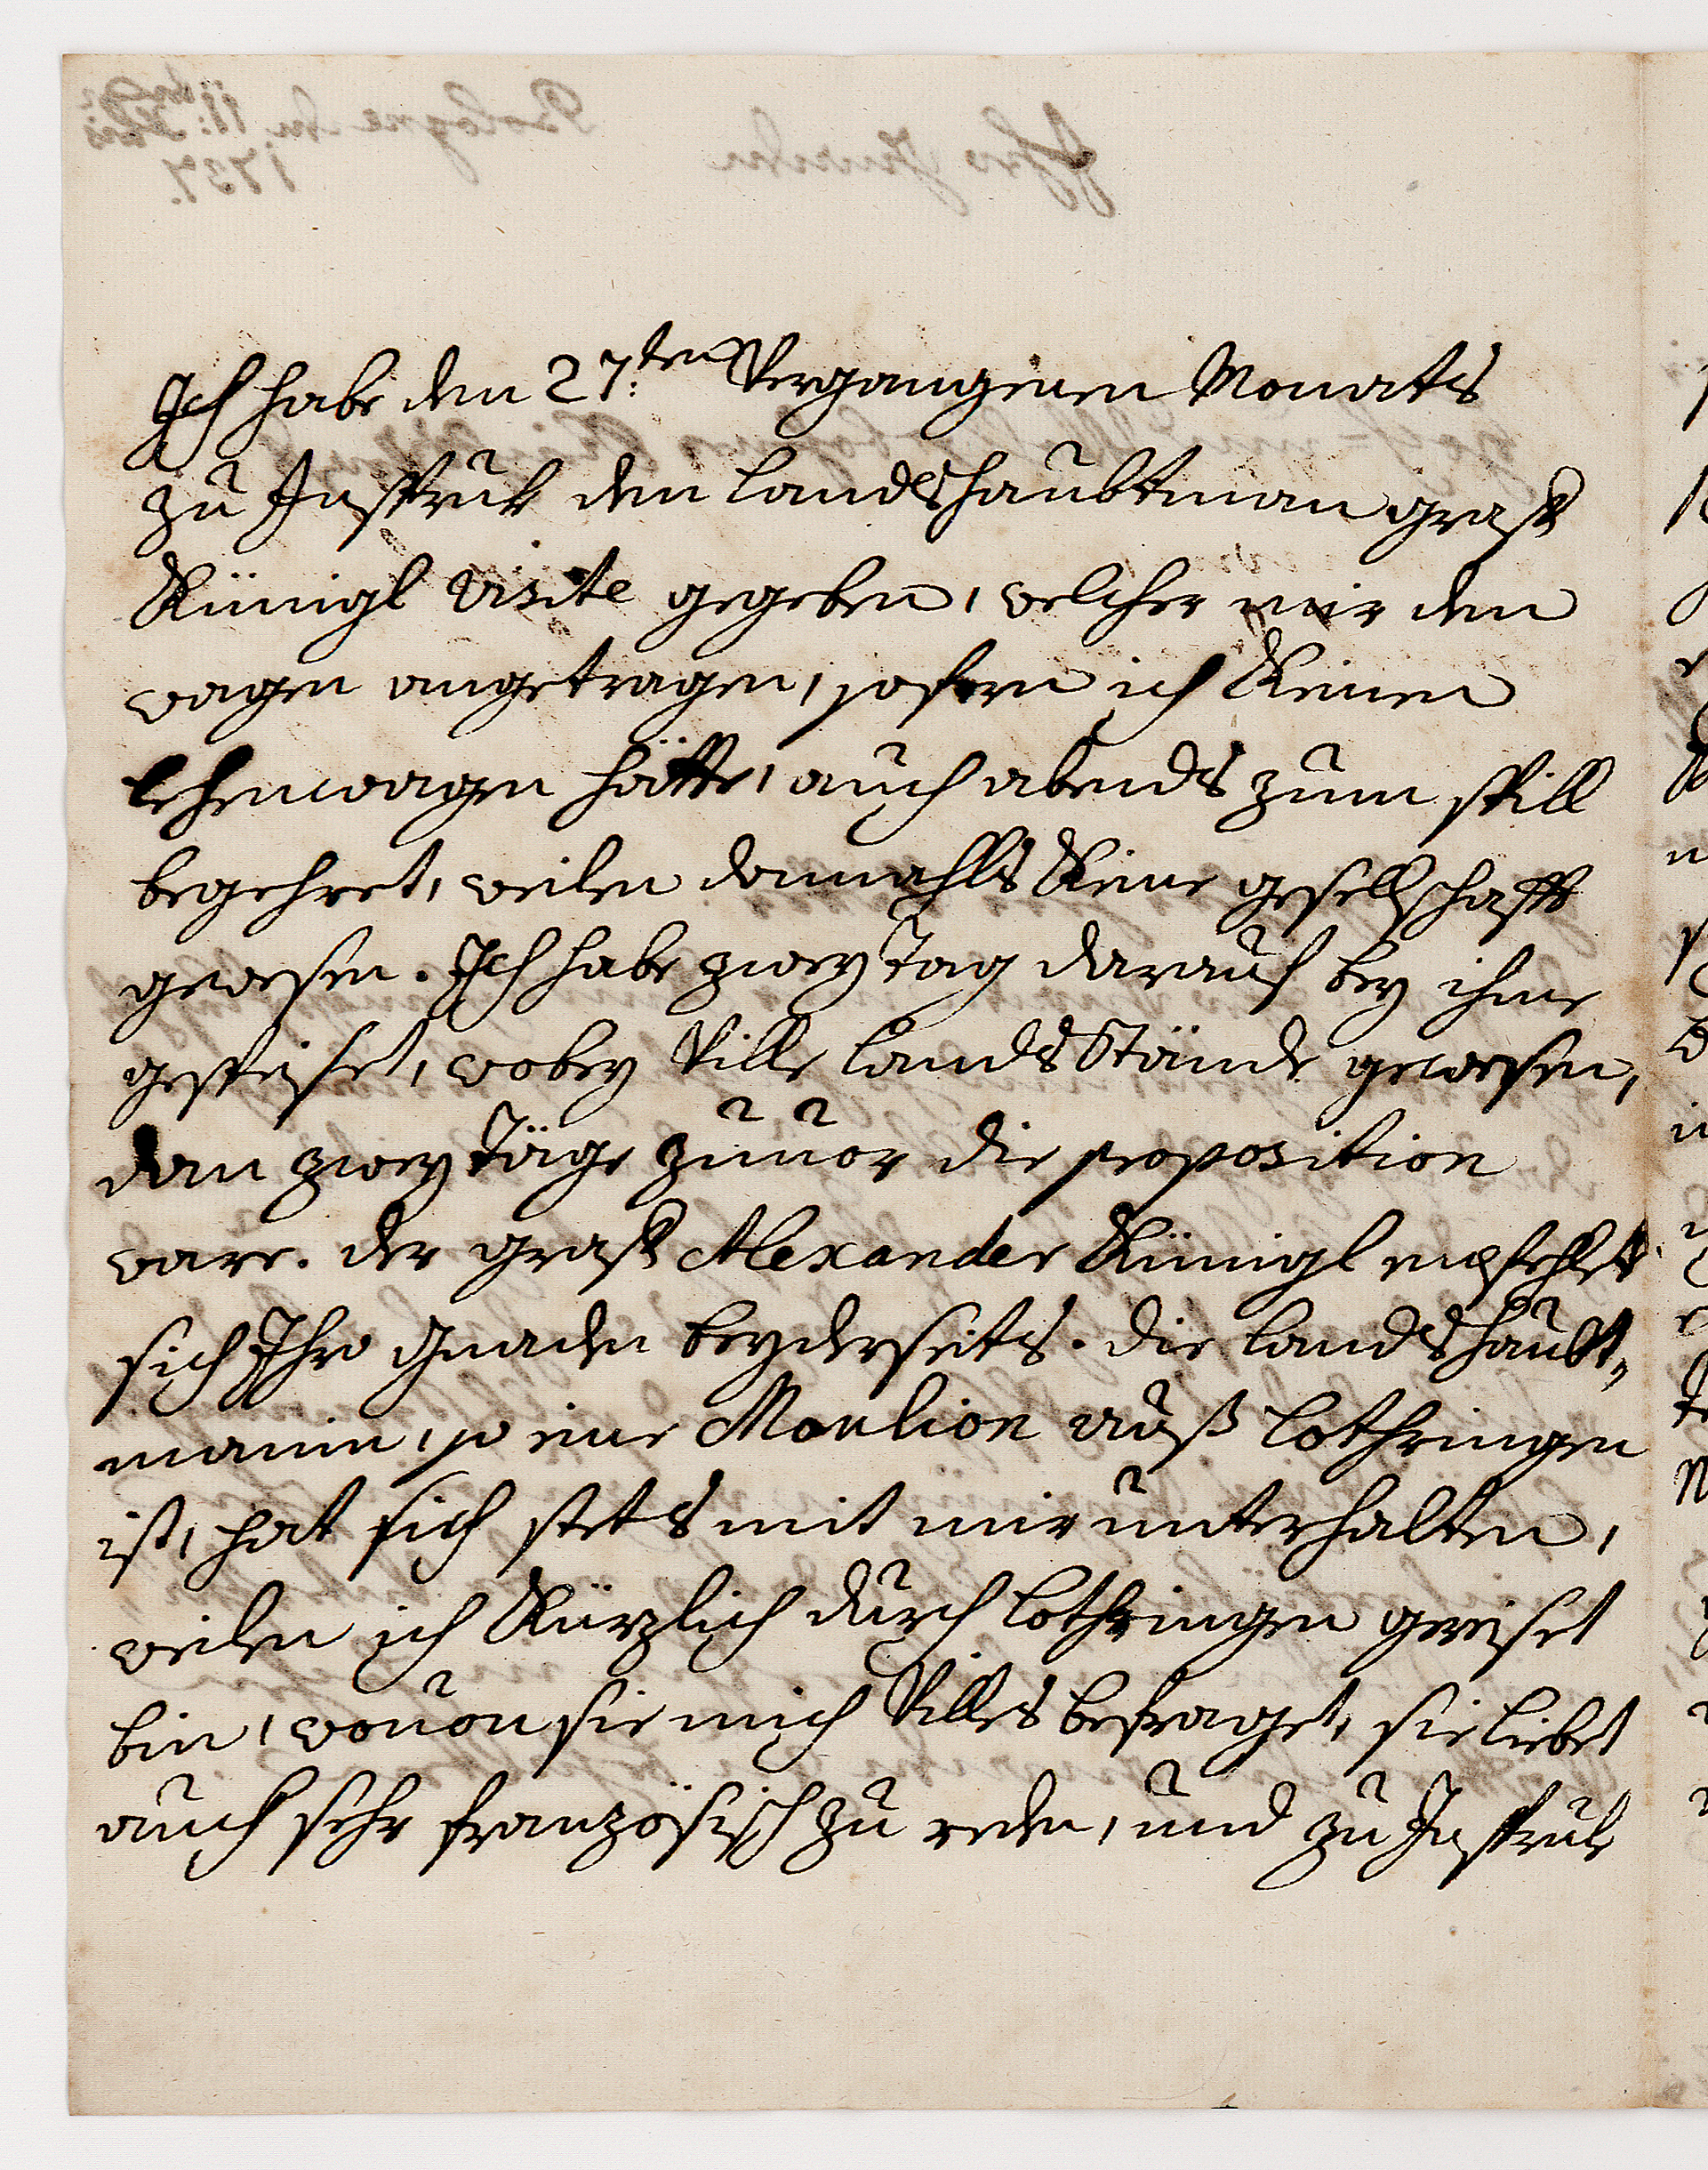 Ich habe den 27:ten Vergangenen Monats
zu Insprukh den landshaubtman graff
Künigl visite gegeben, welcher mir den
wagen angetragen, sofern ich Keinen
lehenwagen hätte, auch abends zum spill
begehret, weilen damahls Keine gesellschafft
gewesen. Ich habe zwey tag darauf bey ihme
gespeiset, wobey Ville landsStände gewesen,
dan zwey täge zuuor die proposition
ware. der graff Alexander Künigl empfehlet
sich Ihro Gnaden beyderseits. die landshaubt„
manin, so eine Moulion auß lothringen
ist, hat sich stets mit mir unterhalten,
weilen ich Kürzlich durch lothringen gereiset
bin, wouon sie mich Villes befraget, sie liebet
auch sehr französisch zu reden, und zu Insprukh